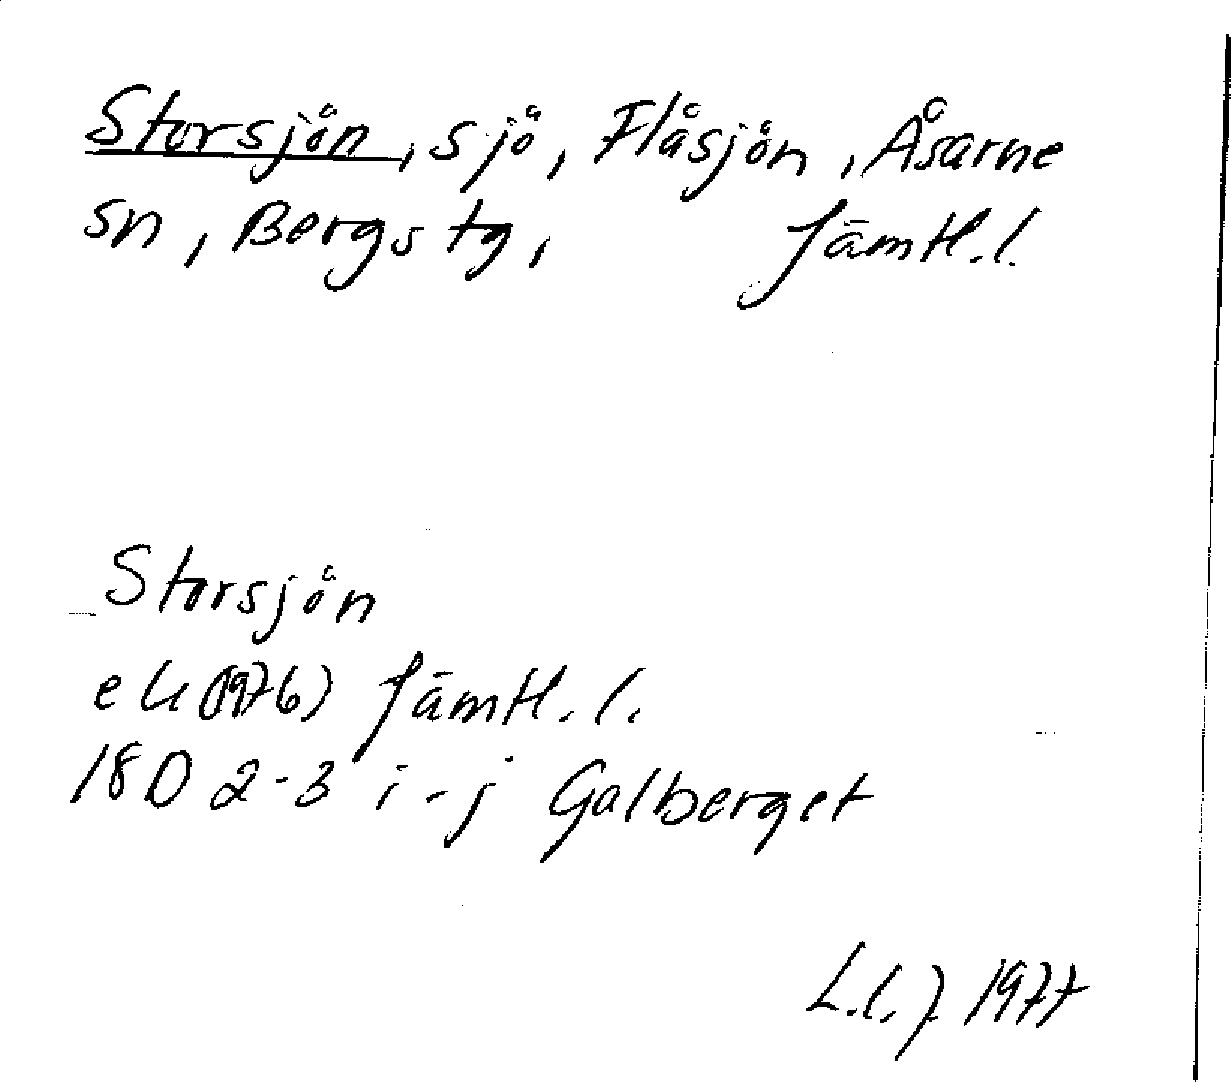 Storsjön, sjö, Flåsjön, Åsarne
sn, Bergs tg, Jämtl. l.
Storsjön
ek (1976) Jämtl. l.
18D 2-3 i-j Galberget
L.l.J 1977